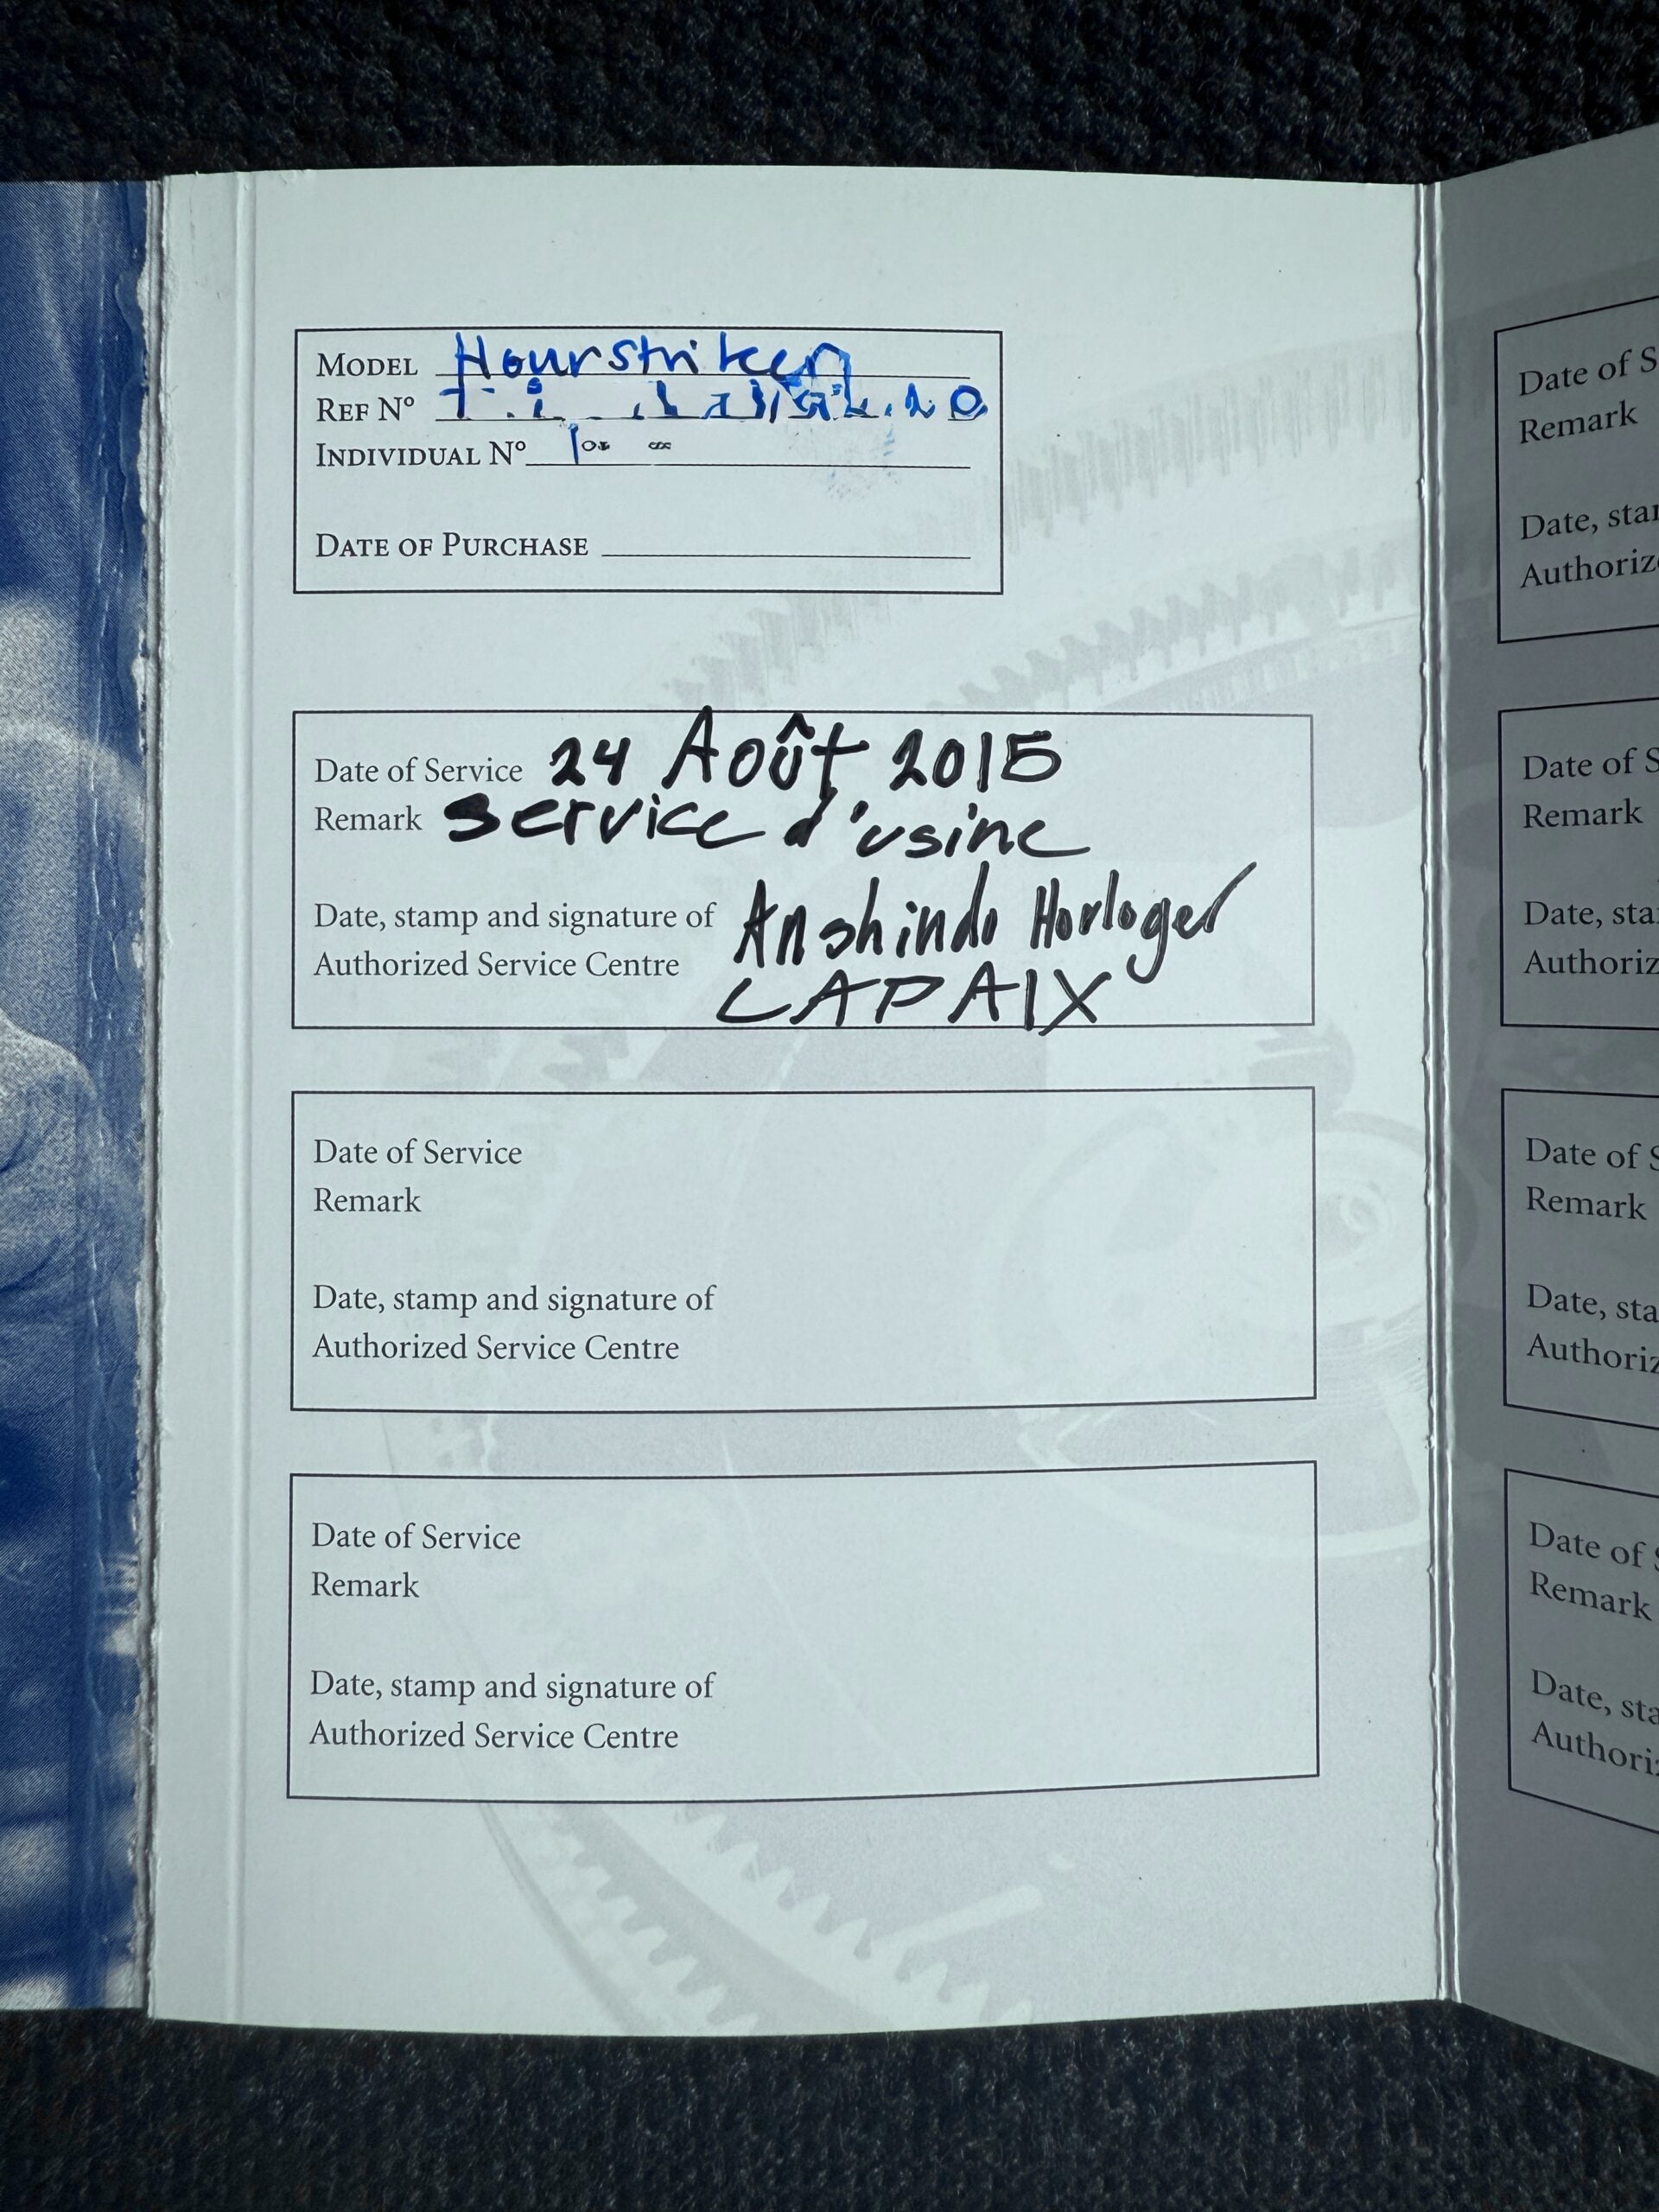 MODEL Hourstriker
REF Nº
INDIVIDUAL Nº
DATE OF PURCHASE
Date of Service 24 Août 2015
Remark service d'usine
Date, stamp and signature of Anshindo Horloger
Authorized Service Centre LAPAIX
Date of Service
Remark
Date, stamp and signature of
Authorized Service Centre
Date of Service
Remark
Date, stamp and signature of
Authorized Service Centre
Date of S
Remark
Date, star
Authoriz
Date of S
Remark
Date, sta
Authoriz
Date of S
Remark
Date, sta
Authoriz
Date of S
Remark
Date, sta
Authoriz